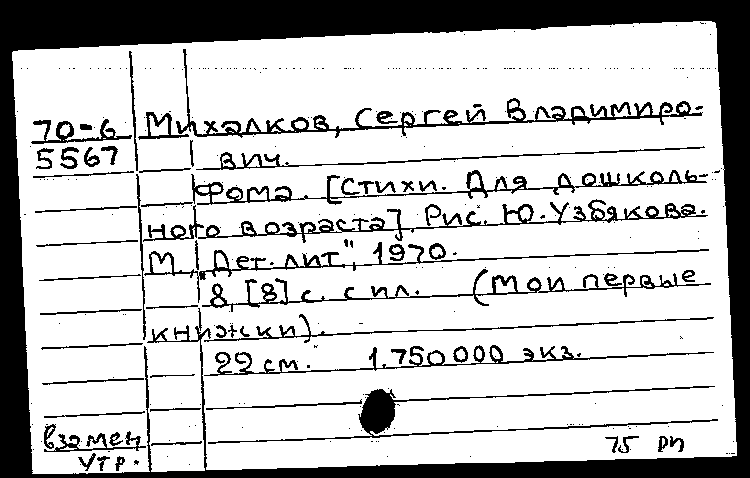 70-6 Михалков, Сергей Владимиро-
5567 вич.
Фома. [Стихи. Для дошколь-
ного возраста]. Рис. Ю. Узбякова.
М, "Дет. лит.", 1970.
8, [8] с. с ил. (Мои первые
книжки).
22 см. 1.750000 экз.
взамен
утр. 75 рп